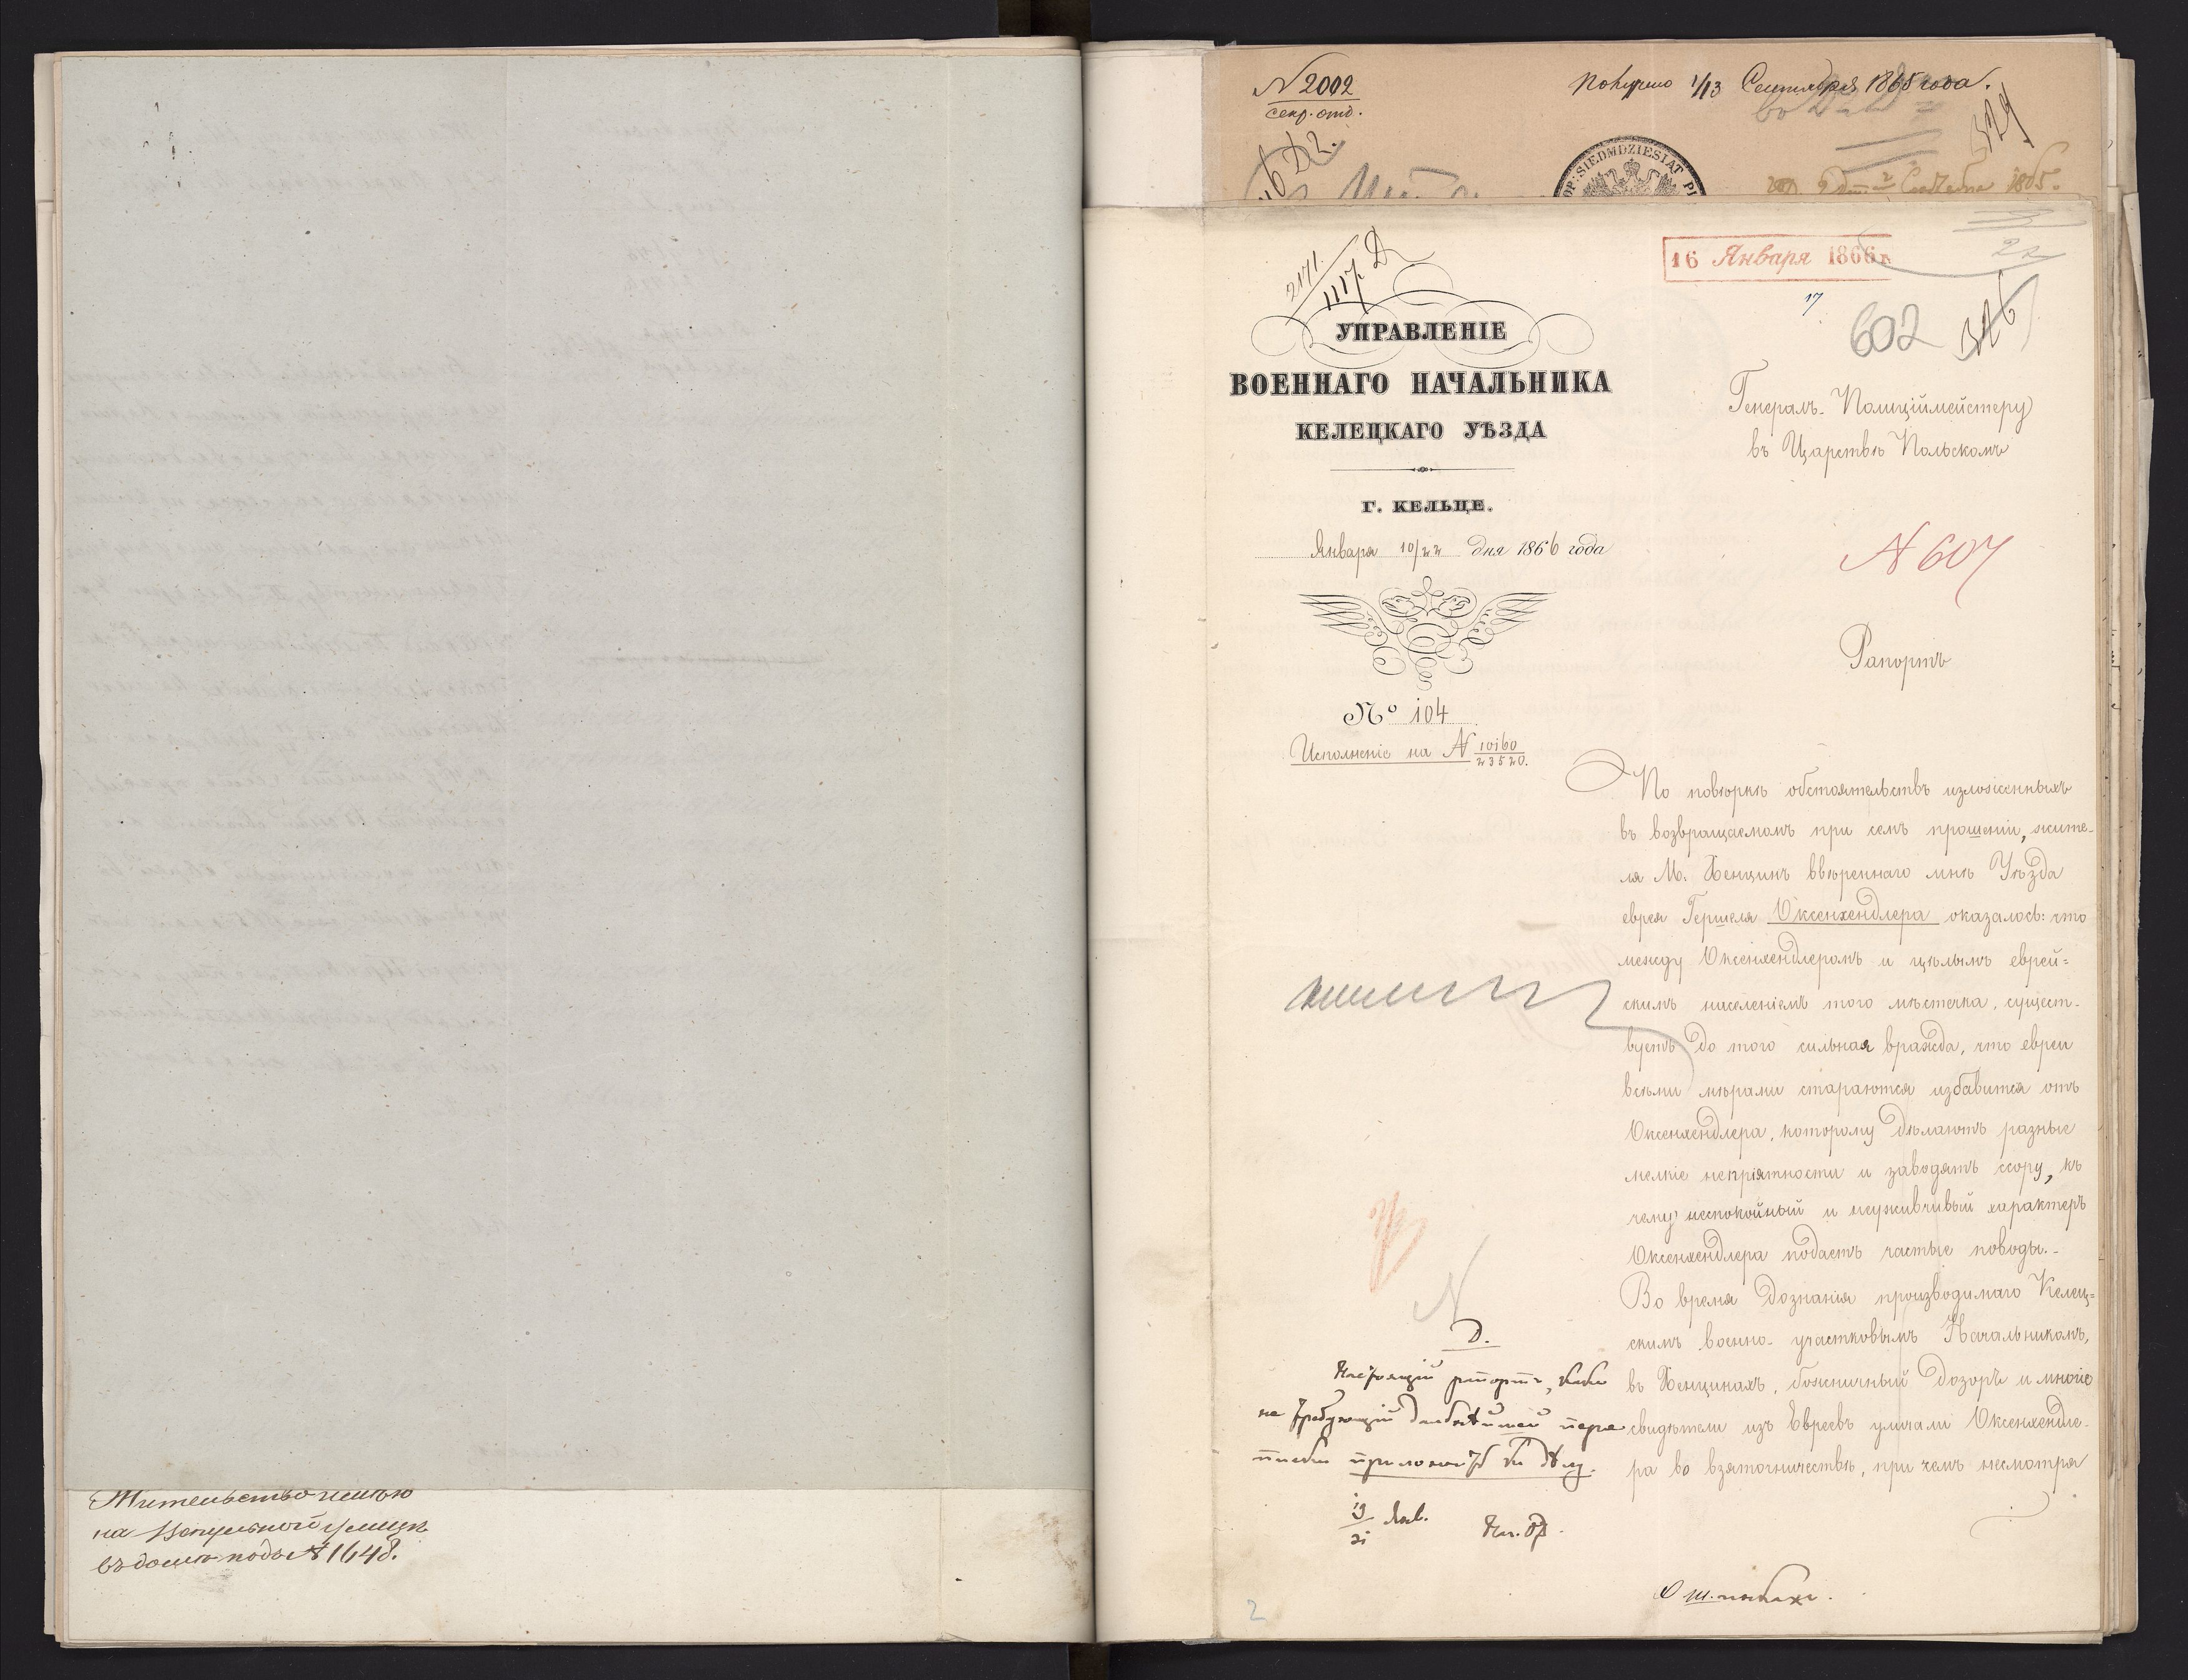 Жительство имѣю
на Вспульной улицѣ
въ домѣ подъ № 1648.
N 2002
секр. отд.
Получено 1/13 Сентября 1865 года.
329
OP: SIEDMDZIESIĄT
1865.
2171.
1117 Д
16 Января 1866 г.
22
17
602
326
УПРАВЛЕНІЕ
ВОЕННАГО НАЧАЛЬНИКА
КЕЛЕЦКАГО УѢЗДА
Г. КЕЛЬЦЕ.
Января 10/22 дня 1866 года
№ 104
Исполненіе на N 10160/23520.
Генералъ-Полиціймейстеру
въ Царствѣ Польскомъ
N 607
Рапортъ
По повѣркѣ обстоятельствъ изложенныхъ
въ возвращаемомъ при семъ прошеніи, жите-
ля М. Хенцинъ ввѣреннаго мнѣ Уѣзда
еврея Гершеля Оксенхендлера оказалось: что
между Оксенхендлеромъ и цѣлымъ еврей=
скимъ населеніемъ того мѣстечка, сущест-
вуетъ до того сильная вражда, что евреи
всѣми мѣрами стараются избавится отъ
Оксенхендлера, которому дѣлаютъ разные
мелкіе непріятности и заводятъ ссору, къ
чему неспокойный и неуживчивый характеръ
Оксенхендлера подаетъ частые поводы.-
Во время дознанія производимаго Келец=
скимъ военно-участковымъ Начальникомъ,
въ Хенцинахъ, божничный дозоръ и многіе
свидѣтели изъ Евреевъ уличали Оксенхендле-
ра во взяточничествѣ, при чемъ несмотря
Д.
Настоящій рапортъ, какъ
не требующій дальнѣйшей пере
писки приложить къ дѣлу.
19/31 Янв.
Нач. От.
2